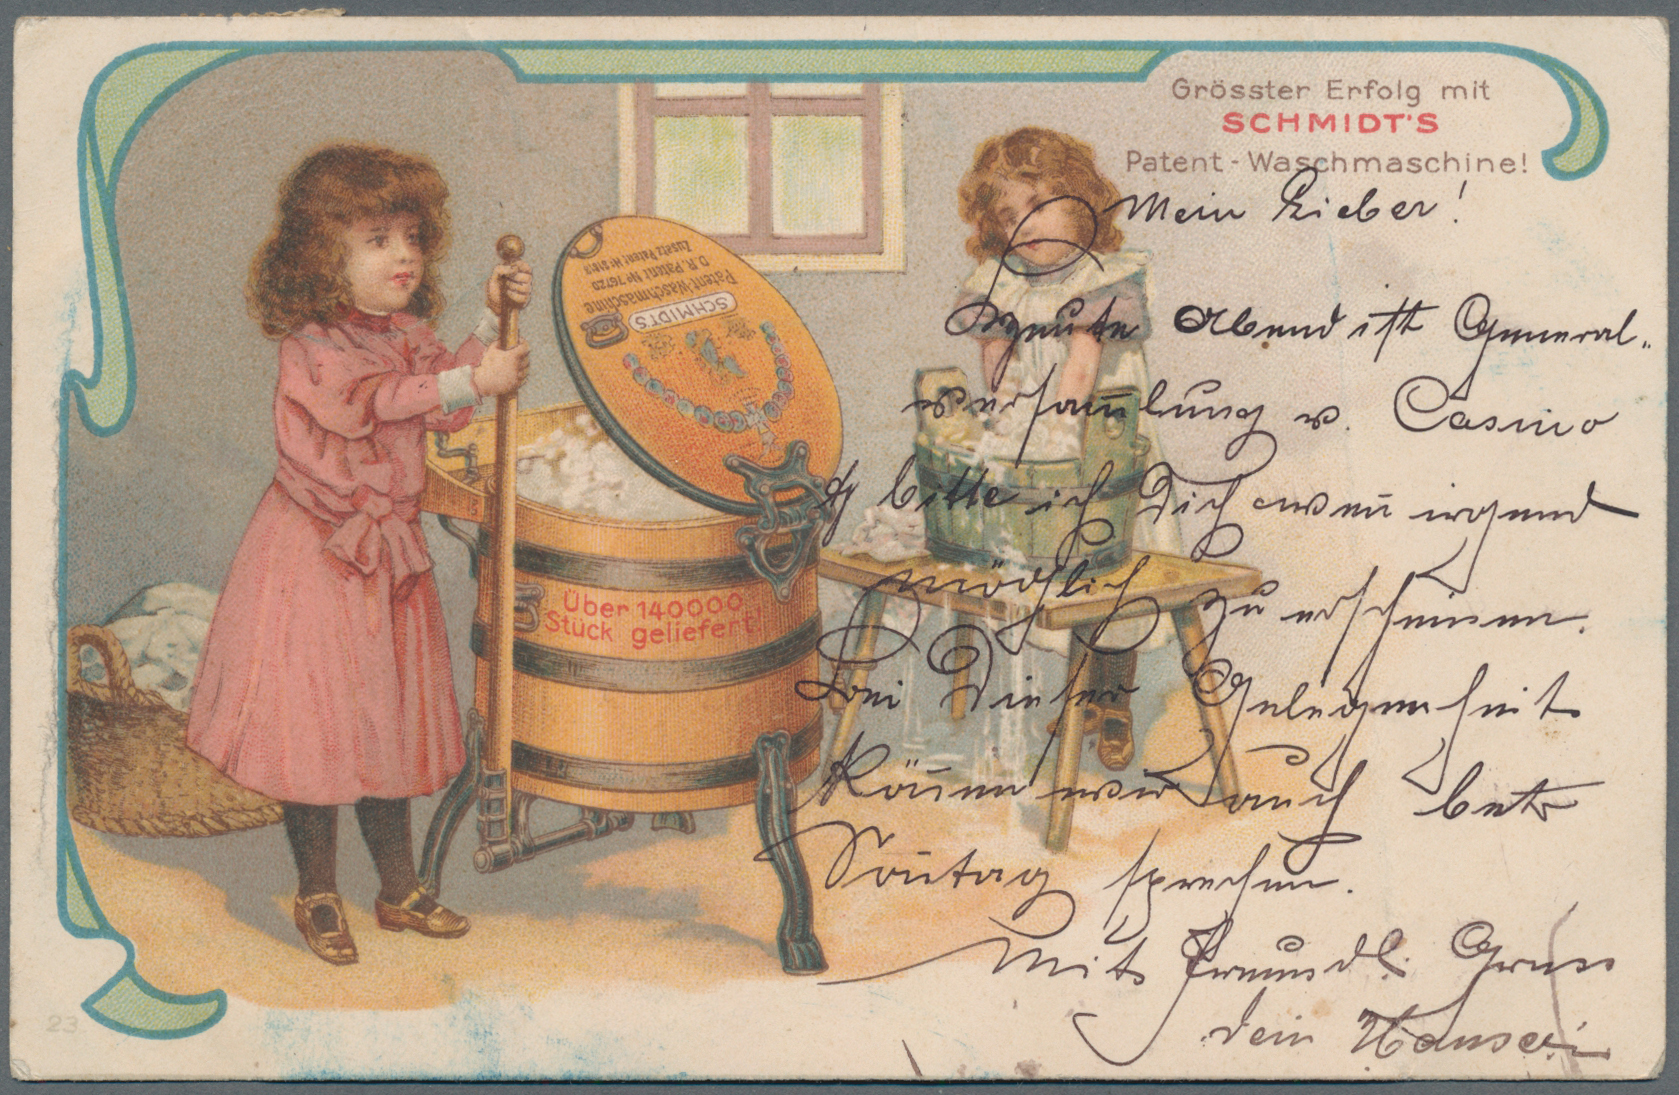 Grösster Erfolg mit
SCHMIDT'S
Patent-Waschmaschine!
SCHMIDT'S
Patent-Waschmaschine
D.R. Patent No 76720
Zusatz Patent
Über 140000
Stück geliefert!
23
Mein Lieber!
Heute Abend ist General-
versam̅lung v. Casino
bitte ich Dich wen̅ irgend
möglich zu erscheinen.
Bei dieser Gelegenheit
kön̅en wir auch betr.
Son̅tag sprechen.
Mit freundl. Gruss
dein